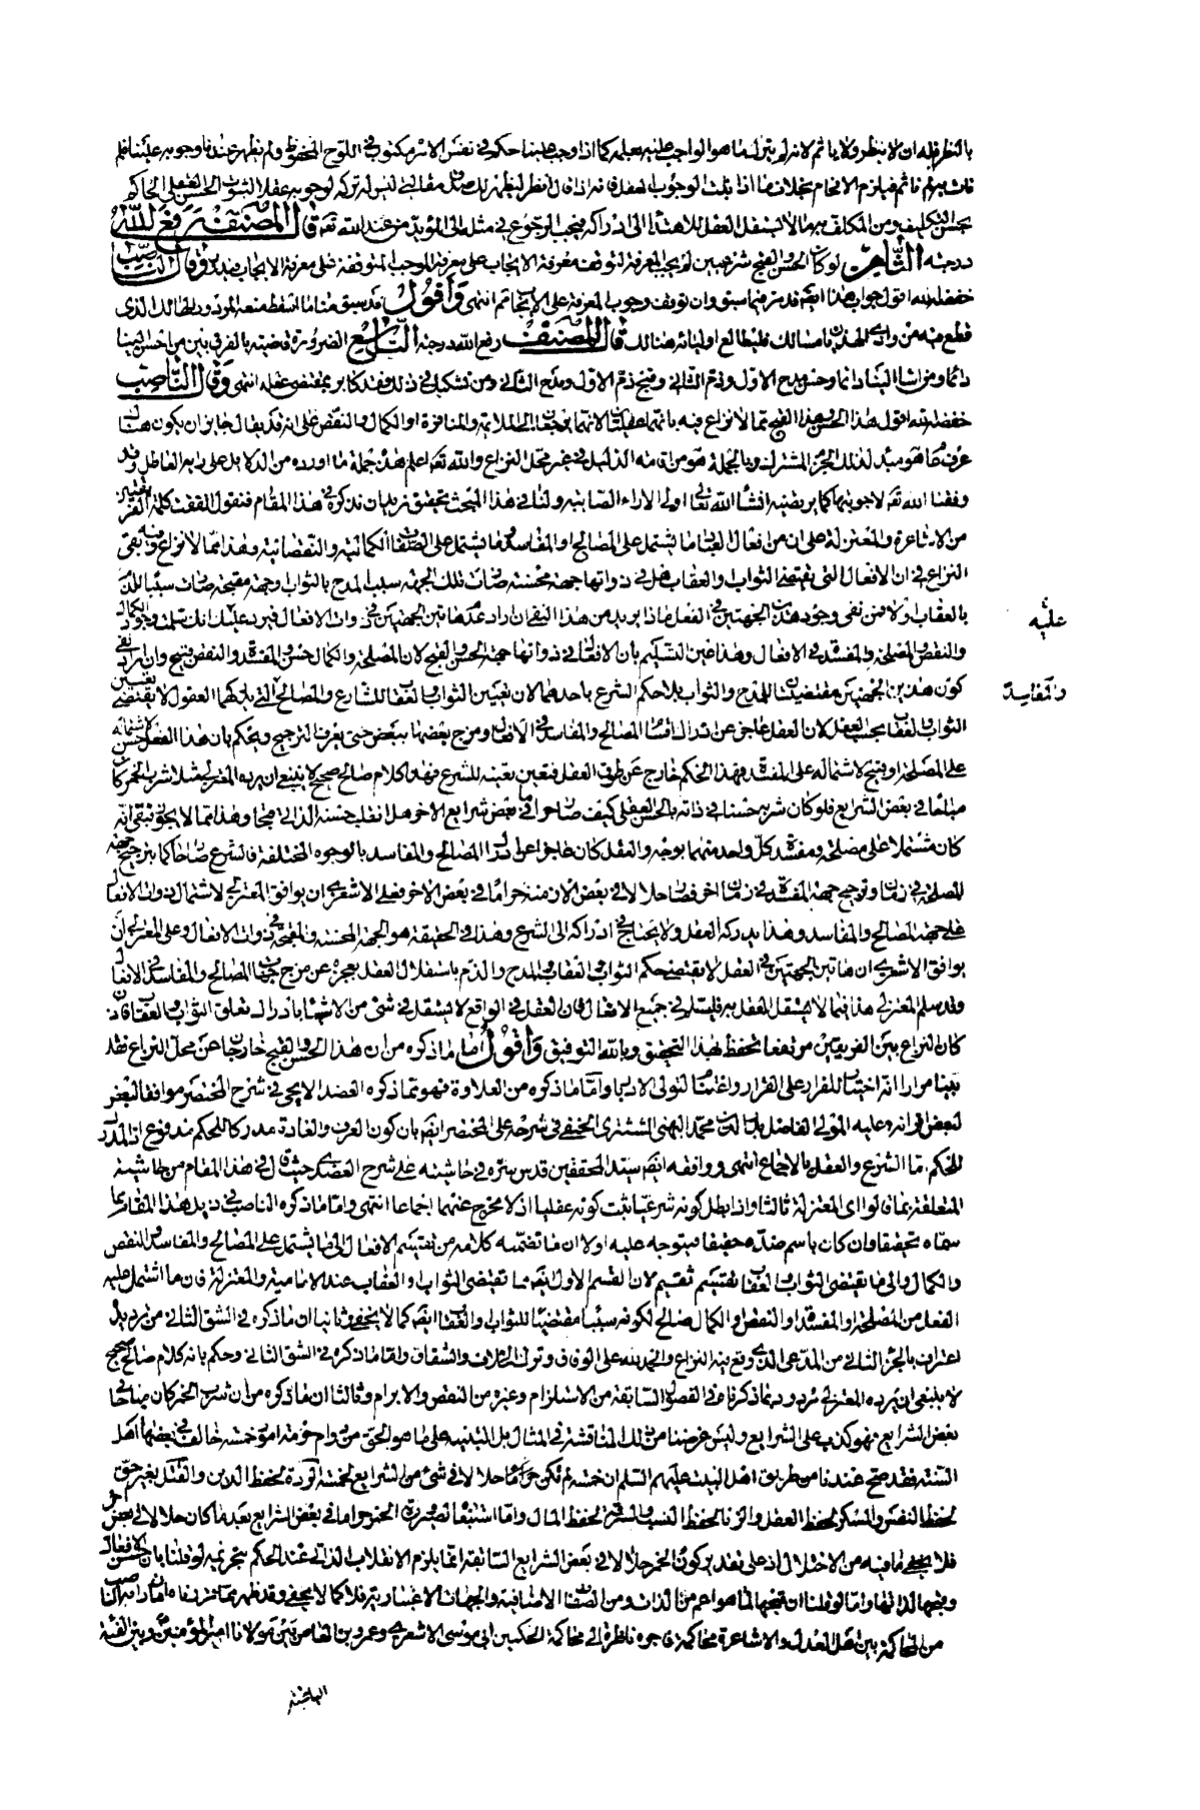 بالنظر فله ان لا ينظر ولا ياثم لانه لم يترك ما هو الواجب عليه بعلمه كما اذا وجب علينا حكم في نفس الامر مكتوب في اللوح المحفوظ ولم يظهر عندنا وجوبه علينا فلم
فيلزم الافحام بخلاف ما اذا ثبت الوجوب العقلي فانه اذا قال انظر ليظهر لك صدق مقالتي ليس له تركه لوجوبه عقلا لثبوت الحسن العقلي الحاكم
بحسن التكليف ومن المكلف به ما لا يستقل العقل للاهتداء الى ادراكه فيجب الرجوع في مثله الى المؤيد من عند الله تعه قال المصنف رفع الله
درجته الثامن لو كان الحسن والقبح شرعيين لم يجب المعرفة لتوقف معرفة الايجاب على معرفة الموجب المتوقفة على معرفة الايجاب فيدور وقال الناصب
خفضه الله اقول جواب هذا ايضا قد مر فيما سبق وان توقف وجوب المعرفة على الايجاب ثم انتهى واقول قد سبق منا ما اسقط منعه المردود وابطال الذي
قطع منه من وادي الهذيان مسالك فليطالع اوليائه هنالك قال المصنف رفع الله درجته التاسع الضرورة قاضية بالفرق بين من احسن الينا
دائما ومن اساء الينا دائما وحسن مدح الاول وذم الثاني وقبح ذم الاول ومدح الثاني ومن تشكك في ذلك فقد كابر بمقتضى عقله انتهى وقال الناصب
خفضه الله اقول هذا الحسن وهذا القبح مما لا نزاع فيه بانهما عقليان لانهما يرجعان الى الملائمة والمنافرة او الكمال والنقص على انه قد يقال جاز ان يكون هناك
عرف عام هو مبدء لذلك الجزم المشترك وبالجملة هو من اقامة الدليل في غير محل النزاع والله تعه اعلم هذه جملة ما اورده من الدلائل على رايه الفاطل وقد
وفقنا الله تعه لاجوبتها كما يرتضيه انشاء الله تعالى اولو الاراء الصائبة ولنا في هذا المبحث تحقيق نريد ان نذكره في هذا المقام فنقول اتفقت كلمة الفريقين
من الاشاعرة والمعتزلة على ان من افعال العباد ما يشتمل على المصالح او المفاسد وما يشتمل على الصفات الكمالية والنقصانية وهذا مما لا نزاع فيه وبقي
النزاع في ان الافعال التي تقتضي الثواب والعقاب هل في ذواتها جهة محسنة صارت تلك الجهة سبب المدح بالثواب وجهة مقبحة صارت سببا للذم
بالعقاب او لا فمن نفى وجود هذين الجهتين في الفعل ماذا يريد من هذا النفي ان اراد عدم هاتين الجهتين في ذوات الافعال فيرد عليك انك سلمت وجود الكمال
والنقص والمصلحة والمفسدة في الافعال وهذا عين التسليم بان الافعال في ذواتها جهة الحسن والقبح لان المصلحة والكمال حسن والمفسدة والنقص قبح وان اراد نفي
كون هذين الجهتين مقتضيتان للمدح والثواب بلا حكم الشرع باحدهما لان تعيين الثواب والعقاب للشارع والمصالح التي يدركهما العقول لا يقتضي تعيين
الثواب والعقاب بحسب العقل لان العقل عاجز عن ادراك اقسام المصالح والمفاسد في الافعال ومزج بعضها ببعض حتى يعرف الترجيح ويحكم بان هذا الفعل حسن لاشتماله
على المصلحة او قبيح لاشتماله على المفسدة فهذا الحكم خارج عن طوق العقل فتعين تعينه للشرع فهذا كلام صالح صحيح لا ينبغي ان يرده المعتزلي مثلا شرب الخمر كان
مباحا في بعض الشرايع فلو كان شربه حسنا في ذاته بالحسن العقلي كيف صار حراما في بعض شرايع الاخر هل انقلب حسنه الذاتي قبحا وهذا مما لا يجوز فبقي انه
كان مشتملا على مصلحة ومفسدة كل واحد منهما بوجه والعقل كان عاجزا عن ادراك المصالح والمفاسد بالوجوه المختلفة فالشرع صار حاكما بترجيح جهة
المصلحة في زمان وترجيح جهة المفسدة في زمان اخر فصار حلالا في بعض الازمنة حراما في بعض الاخر فعلى الاشعري ان يوافق المعتزلي لاشتمال ذوات الافعال
على جهة المصالح والمفاسد وهذا يدركه العقل ولا يحتاج في ادراكه الى الشرع وهذا في الحقيقة هو الجهة المحسنة والمقبحة في ذوات الافعال وعلى المعتزلي ان
يوافق الاشعري ان هاتين الجهتين في العقل لا يقتضي حكم الثواب والعقاب والمدح والذم باستقلال العقل بعجزه عن مزج جهات المصالح والمفاسد في الافعال
وقد سلم المعتزلي هذا فيما لا يستقل العقل به فليسلم في جميع الافعال فان العقل في الواقع لا يستقل في شيء من الاشياء بادراك تعلق الثواب والعقاب فاذن
كان النزاع بين الفريقين مرتفعا تحفظ بهذا التحقيق وبالله التوفيق واقول اما ما ذكره من ان هذا الحسن والقبح خارجان عن محل النزاع فقد
بينا مرارا انه احتيال للفرار على القرار واغتنام لتولي الادبار واما ما ذكره من العلاوة فهو مما ذكره العضد الايجي في شرح المختصر موافقا لبعض
لبعض اقرانه وعليه المولى الفاضل بدر الدين محمد البهني التستري الحنفي في شرحه على المختصر ايضا بان كون العرف والعادة مدركا للحكم مدفوع اذ المدرك
للحكم اما الشرع والعقل بالاجماع انتهى ووافقه ايضا سيد المحققين قدس سره في حاشيته على شرح العضدي حيث قال في هذا المقام من حاشيته
المتعلقة بما قالوا اي المعتزلة ثالثا واذا بطل كونه شرعيا ثبت كونه عقليا اذ لا مخرج عنهما اجماعا انتهى واما ما ذكره الناصب في ذيل هذا المقام بما
سماه تحقيقا وان كان باسم ضده حقيقا فيتوجه عليه اولا ان ما تضمنه كلامه من تقسيم الافعال الى ما يشتمل على المصالح والمفاسد والنقص
والكمال والى ما يقتضي الثواب والعقاب تقسيم سقيم لان القسم الاول ايضا مما تقتضي الثواب والعقاب عند الامامية والمعتزلة فان ما اشتمل عليه
الفعل من المصلحة والمفسدة او النقص والكمال صالح لكونه سببا مقتضيا للثواب والعقاب ايضا كما لا يخفى وثانيا ان ما ذكره في الشق الثاني من ترديده
اعتراف بالجزء الثاني من المدعى الذي وقع فيه النزاع والحمد لله على الوفاق وترك الخلاف والشقاق واما ما ذكره في الشق الثاني وحكم بانه كلام صالح صحيح
لا ينبغي ان يرده المعتزلي مردود بما ذكرناه في الفصول السابقة من الاستلزام وغيره من النقض والابرام وثالثا ان ما ذكره من ان شرب الخمر كان مباحا في
بعض الشرايع فهو كذب على الشرايع وليس غرضنا من ذلك المناقشة في المثال بل التنبيه على ما هو الحق من دوام حرمة امور خمسة خالف في بعضها اهل
السنة فقد صح عندنا من طريق اهل البيت عليهم السلم ان خمسة لم تكن حلالا في شيء من الشرايع الخمسة الردة لحفظ الدين والقتل بغير حق
لحفظ النفس والمسكر لحفظ العقل والزنا لحفظ النسب والسرقة لحفظ المال واما استبعاد صيرورة الخمر حراما في بعض الشرايع بعد ما كان حلالا في بعض اخر
فلا يخفى ما فيه من الاختلال اذ على تقدير كون الخمر حلالا في بعض الشرايع السابقة انما يلزم الانقلاب الذاتي عند الحكم بتحريمه لو قلنا بان حسن الافعال
وقبحها لذواتها واما لو قلنا ان قبحها لما هو اعم من الذات ومن الصفات الاضافية والجهات الاعتبارية فلا كما لا يخفى وقد ظهر مما قررناه ان ما رامه الناصب
من المحاكمة بين اهل العدل والاشاعرة محاكمة فاجرة ناظرة الى محاكمة الحكمين ابي موسى الاشعري وعمرو بن العاص بين مولانا امير المؤمنين وبين الفئة
الباغية
عليه
والمفاسد